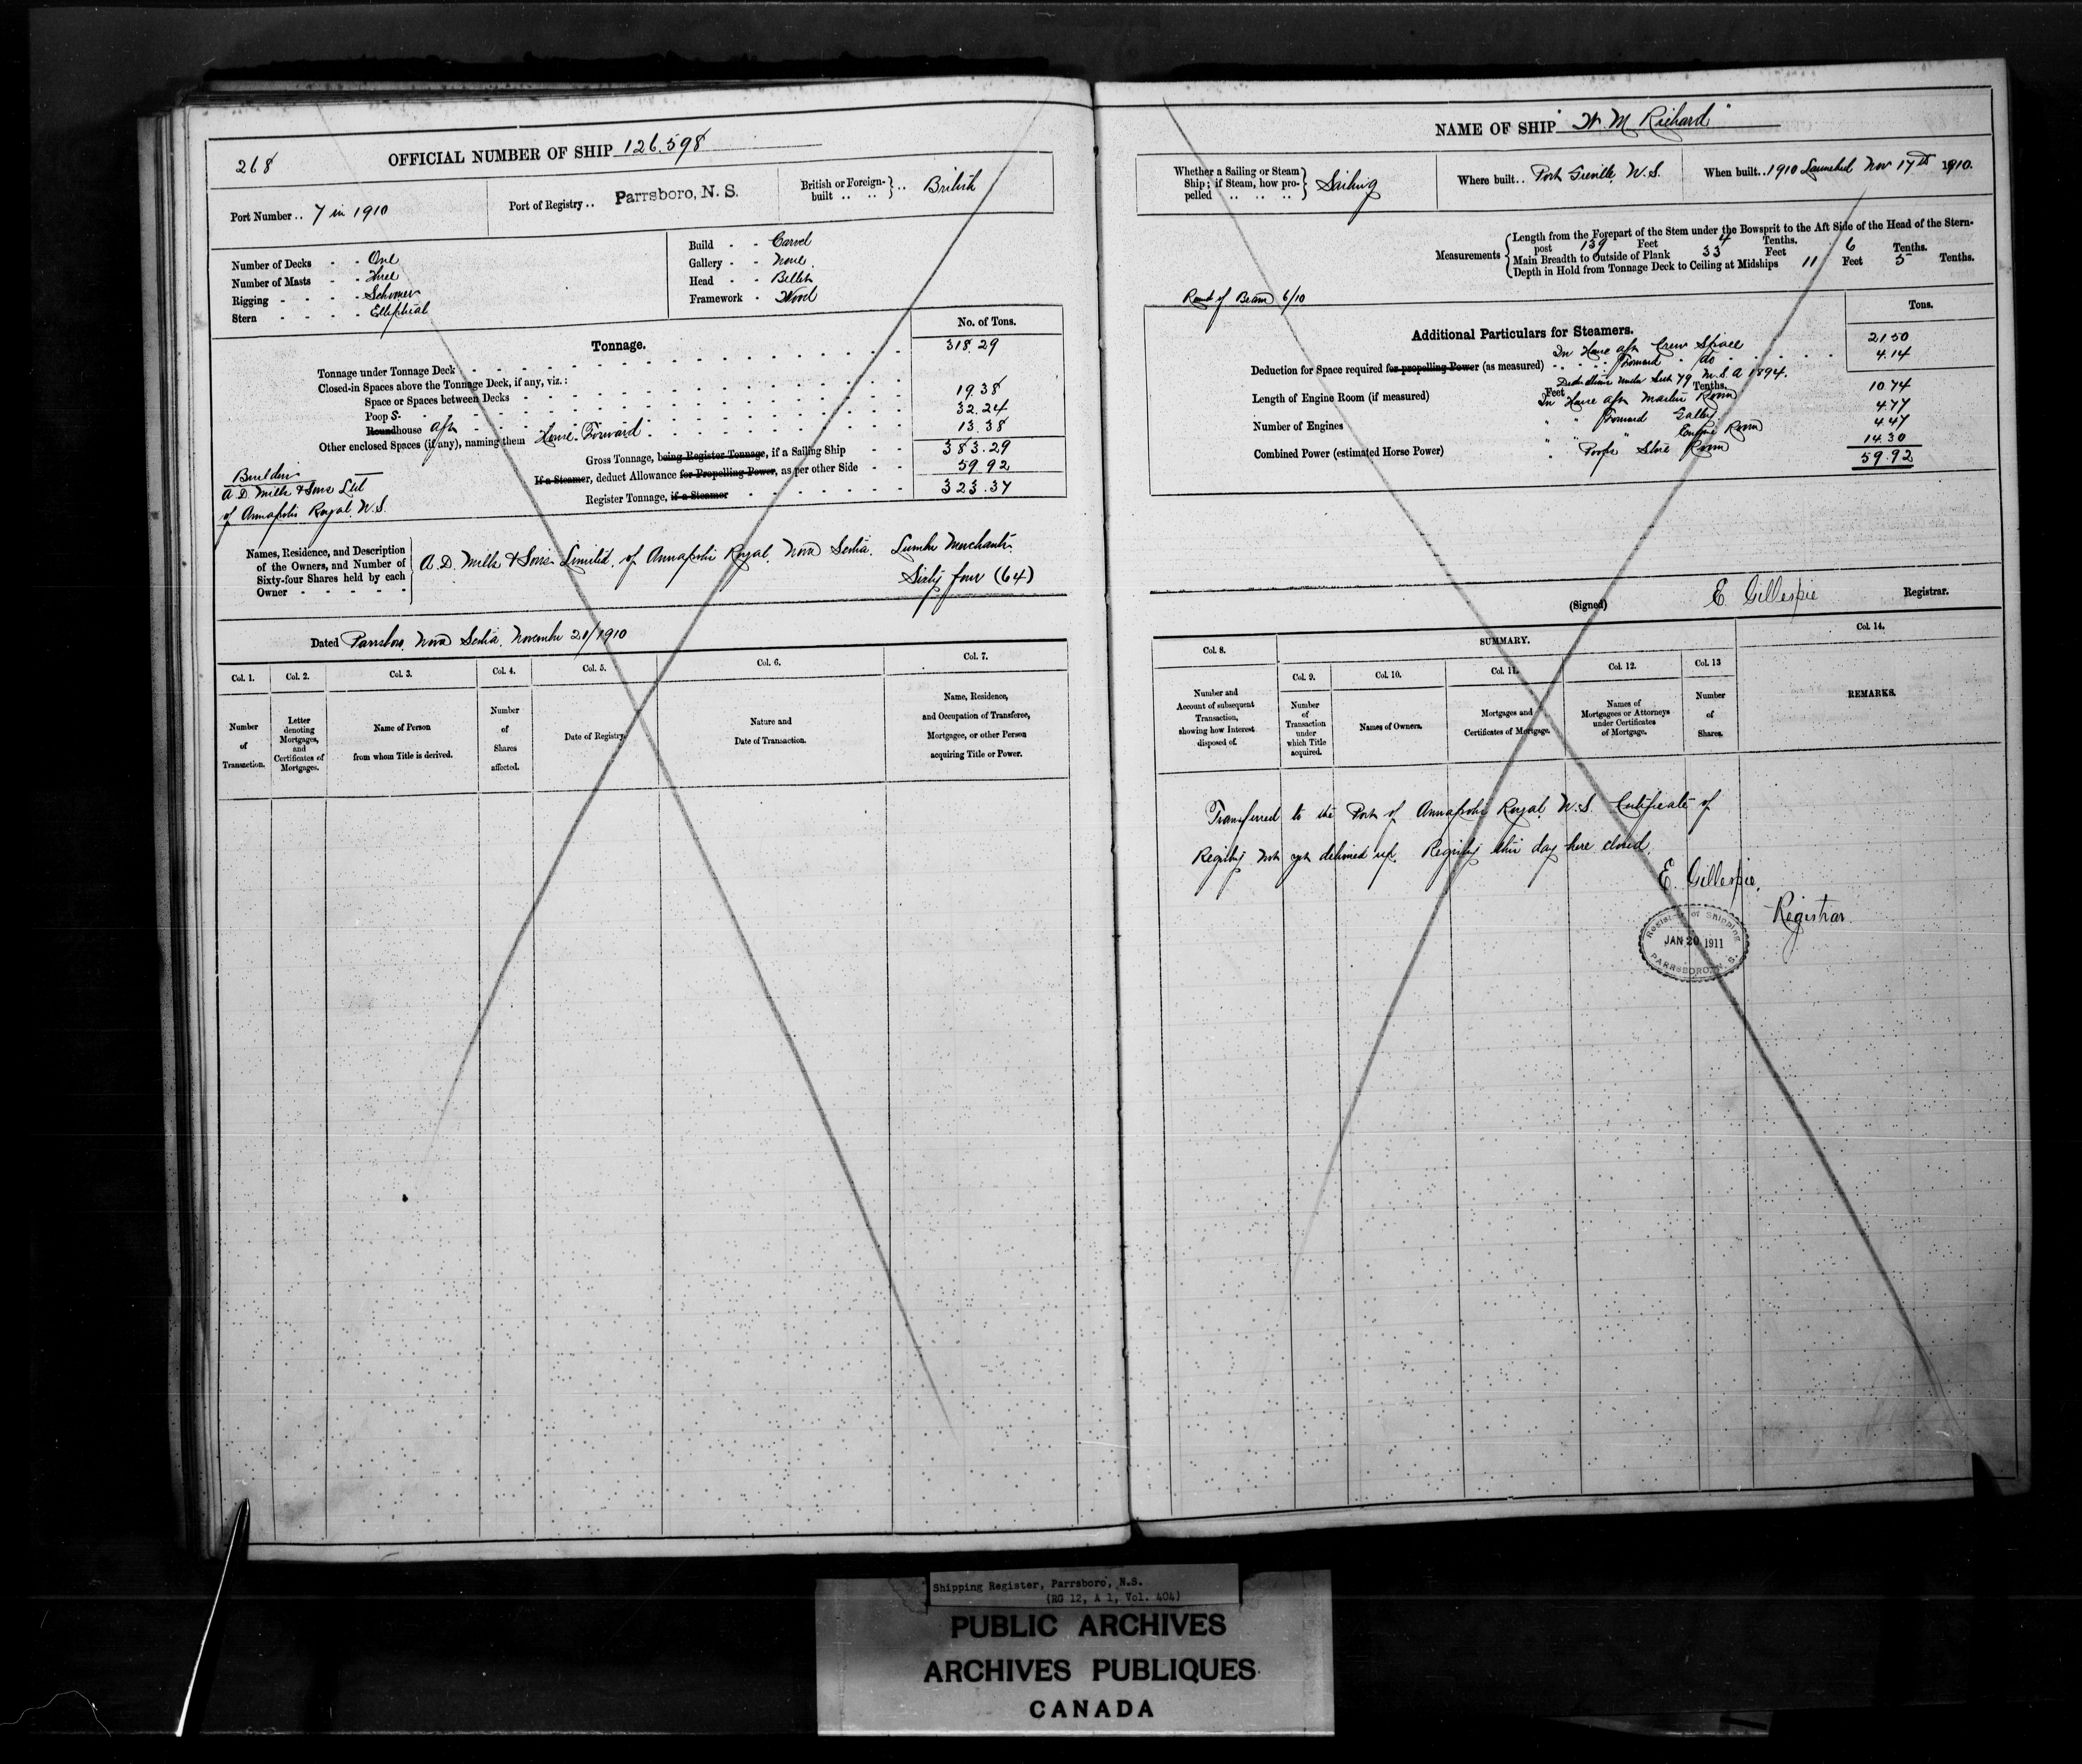 268
OFFICIAL NUMBER OF SHIP 126.598
Port Number .. 7 in 1910
Port of Registry .. Parrsboro, N. S.
British or Foreign-built .. .. } .. British
Number of Decks - - One
Number of Masts - - Three
Rigging - - - - Schooner
Stern - - - - Elliptical
Build - - Carvel
Gallery - - None.
Head - - Billet
Framework - Wood
No. of Tons.
Tonnage.
Tonnage under Tonnage Deck 318.29
Closed-in Spaces above the Tonnage Deck, if any, viz.:
Space or Spaces between Decks
Poop S. 19.38
Roundhouse aft 32.24
Other enclosed Spaces (if any), naming them House Forward 13.38
Gross Tonnage, being Register Tonnage, if a Sailing Ship 383.29
If a Steamer, deduct Allowance for Propelling Power, as per other Side 59.92
Register Tonnage, if a Steamer 323.37
Builders
A. D. Mills & Sons Ltd
of Annapolis Royal, N.S.
Names, Residence, and Description
of the Owners, and Number of
Sixty-four Shares held by each
Owner - - - - -
A. D. Mills & Sons Limited, of Annapolis Royal, Nova Scotia. Lumber Merchants.
Sixty four (64)
Dated Parrsboro, Nova Scotia, November 21/1910
Col. 1. Col. 2. Col. 3. Col. 4. Col. 5. Col. 6. Col. 7.
Number of Transaction.
Letter denoting Mortgages, and Certificates of Mortgages.
Name of Person from whom Title is derived.
Number of Shares affected.
Date of Registry.
Nature and Date of Transaction.
Name, Residence, and Occupation of Transferee, Mortgagee, or other Person acquiring Title or Power.
NAME OF SHIP "W. M. Richard"
Whether a Sailing or Steam Ship; if Steam, how propelled .. .. .. } Sailing
Where built .. Port Greville, N.S.
When built .. 1910 Launched Nov 17th 1910.
Measurements
Length from the Forepart of the Stem under the Bowsprit to the Aft Side of the Head of the Stern-
post 139 Feet 4 Tenths.
Main Breadth to Outside of Plank 33 Feet 6 Tenths.
Depth in Hold from Tonnage Deck to Ceiling at Midships 11 Feet 5 Tenths.
Round of Beam 6/10
Tons.
Additional Particulars for Steamers.
In House aft Crew Space 21.50
Deduction for Space required for propelling Power (as measured) " Forward " do 4.14
Deductions under Sect 79 M.S.A 1894.
Length of Engine Room (if measured) Feet Tenths.
In House aft Master Room 10.74
Number of Engines
" " Forward Galley 4.77
" " " Engine Room 4.47
Combined Power (estimated Horse Power)
" Poop Store Room 14.30
59.92
(Signed) E. Gillespie Registrar.
Col. 8. SUMMARY. Col. 14.
Col. 9. Col. 10. Col. 11. Col. 12. Col. 13
Number and Account of subsequent Transaction, showing how Interest disposed of.
Number of Transaction under which Title acquired.
Names of Owners.
Mortgages and Certificates of Mortgage.
Names of Mortgagees or Attorneys under Certificates of Mortgage.
Number of Shares.
REMARKS.
Transferred to the Port of Annapolis Royal, N.S. Certificate of
Registry not yet delivered up. Registry this day here closed.
E. Gillespie,
Registrar.
Registrar of Shipping
JAN 20 1911
PARRSBORO, N. S.
Shipping Register, Parrsboro, N.S.
(RG 12, A 1, Vol. 404)
PUBLIC ARCHIVES
ARCHIVES PUBLIQUES
CANADA